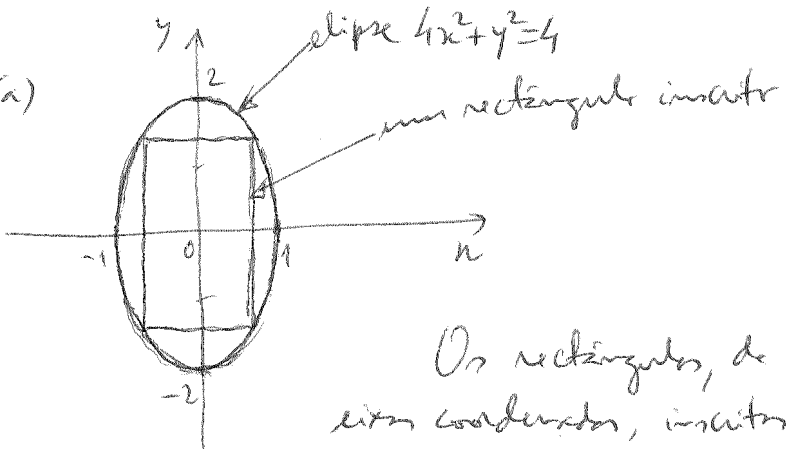 y
elipse 4x²+y²=4
2
a)
um rectângulo inscrito
-1
0
1
x
-2
Os rectângulos, de
eixos coordenados, inscritos